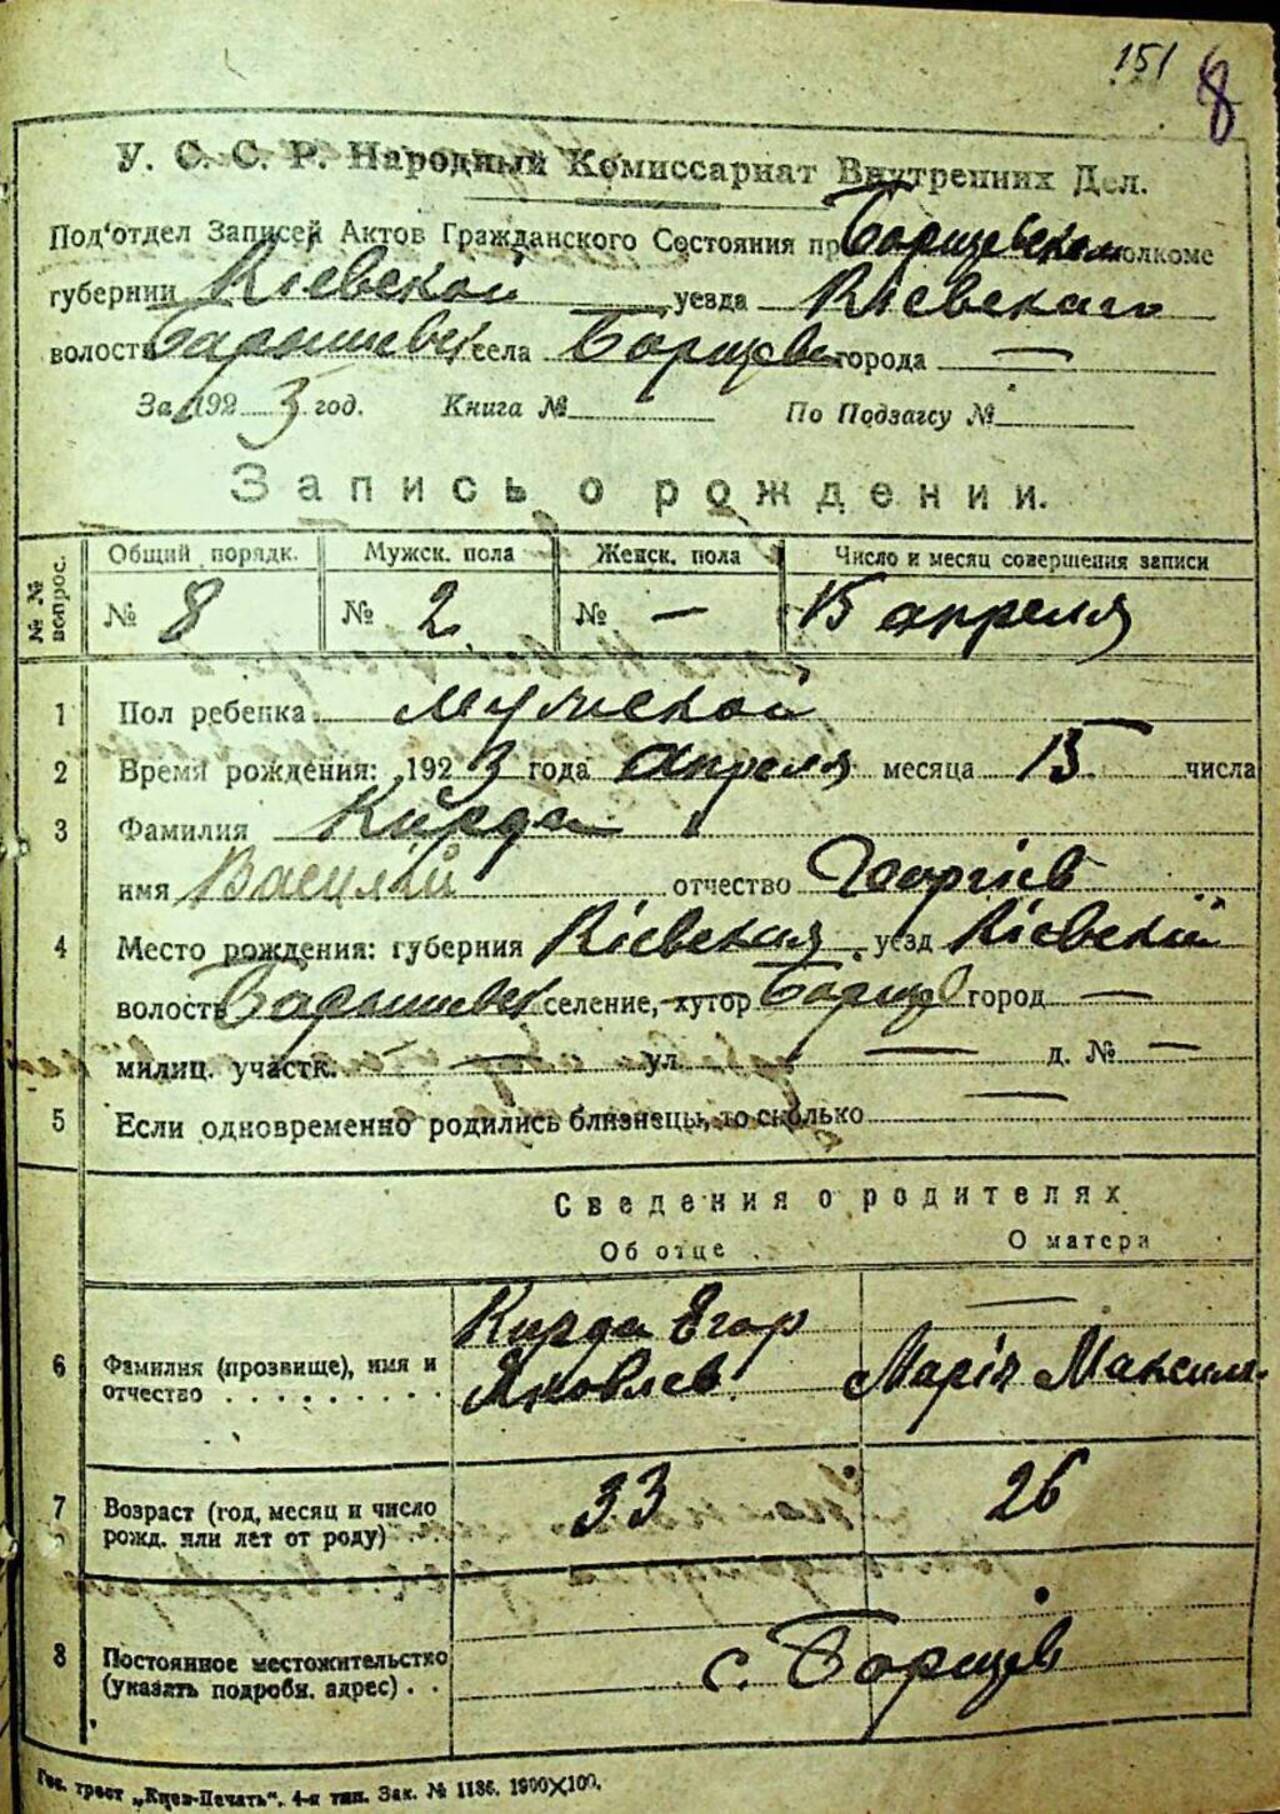 151 8
У. С. С. Р. Народный Комиссариат Внутренних Дел.
Под'отдел Записей Актов Гражданского Состояния при Борщевском волкоме
губернии Кіевской уезда Кіевскаго
волости Барышевск села Борщев города —
За 1923 год. Книга № По Подзагсу №
Запись о рождении.
№ № вопрос. Общий порядк. Мужск. пола Женск. пола Число и месяц совершения записи
№ 8 № 2 № — 15 апреля
1 Пол ребенка мужской
2 Время рождения: 1923 года Апреля месяца 15 числа
3 Фамилия Кирда
имя Василій отчество Георгіев
4 Место рождения: губерния Кіевская уезд Кіевскій
волость Барышевск селение, хутор Борщев город —
милиц. участк. — ул. — д. № —
5 Если одновременно родились близнецы, то сколько —
Сведения о родителях
Об отце О матери
6 Фамилия (прозвище), имя и отчество . . . . . . . . Кирда Егор Яковлев — Марія Максим.
7 Возраст (год, месяц и число рожд. или лет от роду) . . 33 26
8 Постоянное местожительство (указать подробн. адрес) . . с. Борщев
Гос. трест „Киев-Печать“. 4-я тип. Зак. № 1186. 1900×100.